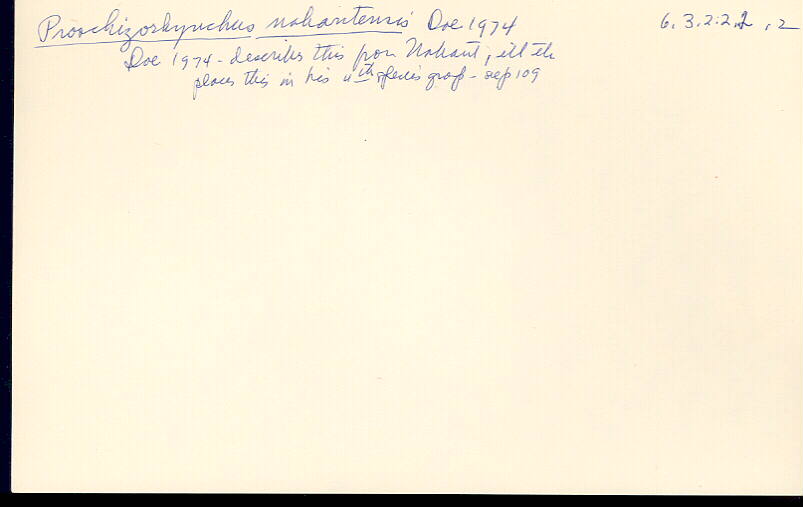 Proschizorhynchus nahantensis Doe 1974 6.3.2.2.2 .2
Doe 1974 - describes this from Nahant, ill th
places this in his 4th species group - see p 109